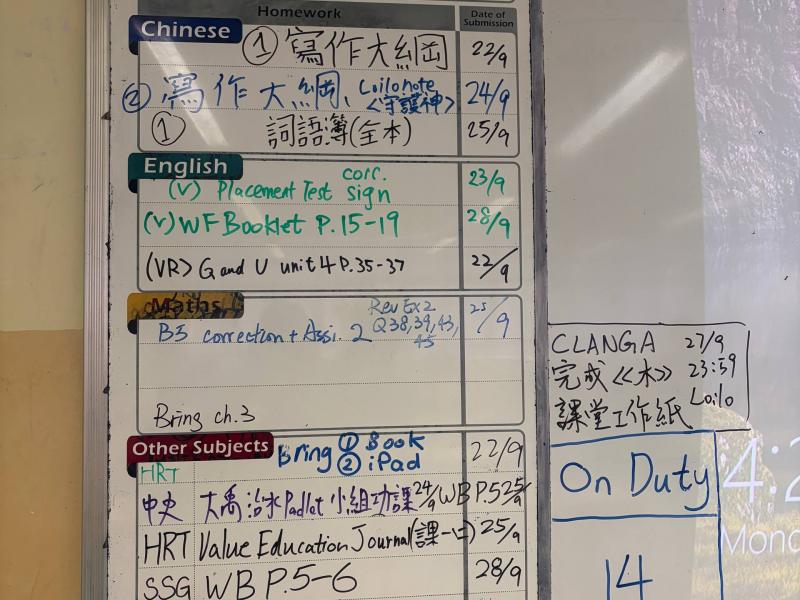 Homework Date of Submission
Chinese
① 寫作大綱 22/9
② 寫作大綱、Loilonote <守護神> 24/9
① 詞語簿(全本) 25/9
English
(V) Placement Test corr. sign 23/9
(V) WF Booklet P.15-19 28/9
(VR) G and U unit 4 P.35-37 22/9
Maths
B3 correction + Assi. 2 Rev Ex 2 Q38,39,43,45 25/9
Bring ch.3
Other Subjects Bring ① Book ② iPad 22/9
HRT
中央 大禹治水Padlet 小組功課 24/9 WB P.5 25/9
HRT Value Education Journal (課一) 25/9
SSG WB P.5-6 28/9
CLANGA 27/9
完成《木》 23:59
課堂工作紙 Loilo
On Duty
14
Mond